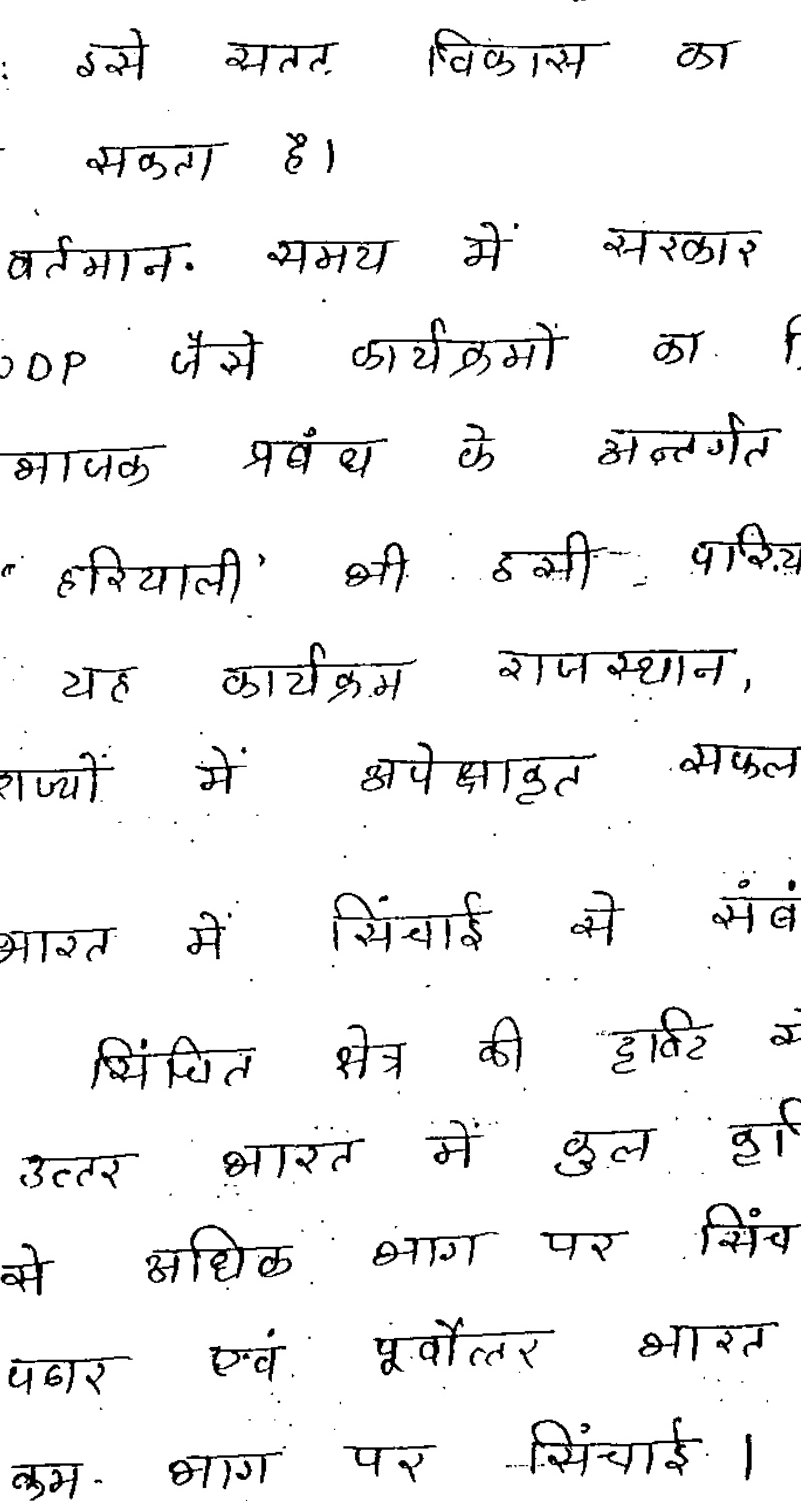 : इसे सतत विकास का
सकता है।
वर्तमान समय में सरकार
DP जैसे कार्यक्रमों का
भाजक प्रबंध के अन्तर्गत
"हरियाली' भी इसी परिय
यह कार्यक्रम राजस्थान,
राज्यों में अपेक्षाकृत सफल
भारत में सिंचाई से संबं
सिंचित क्षेत्र की दृष्टि से
उत्तर भारत में कुल कृ
से अधिक भाग पर सिंच
पठार एवं पूर्वोत्तर भारत
कम भाग पर सिंचाई।